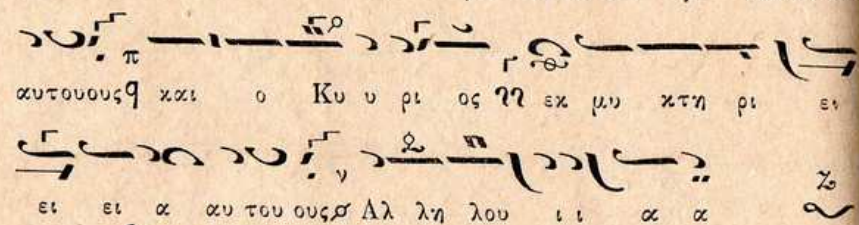 αυτουους και ο Κυ υ ρι ος εκ μυ κτη ρι ει
ει ει α αυ του ους Αλ λη λου ι ι α α